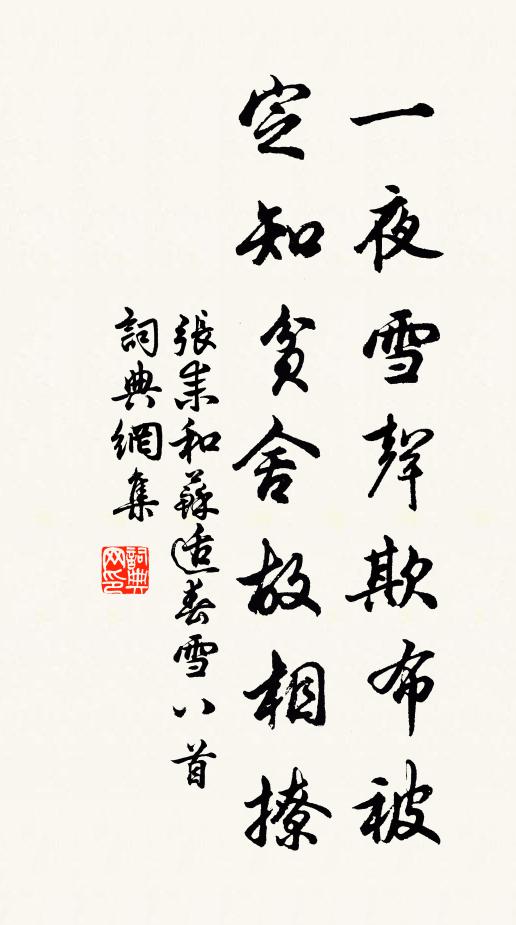 一夜雪聲欺布被
定知貧舍故相撩
張耒和蘇适春雪八首
詞典網集
詞典网印